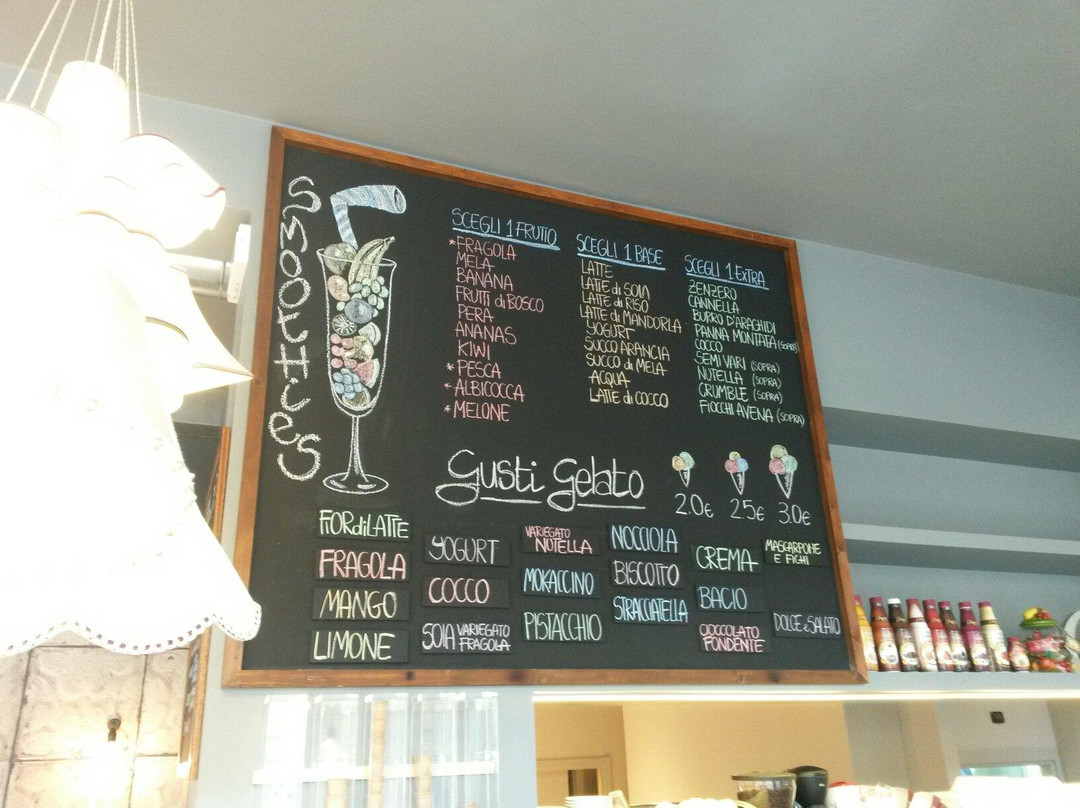 SMOOTHIES
SCEGLI 1 FRUTTO
*FRAGOLA
MELA
BANANA
FRUTTI di BOSCO
PERA
ANANAS
KIWI
*PESCA
*ALBICOCCA
*MELONE
SCEGLI 1 BASE
LATTE
LATTE di SOIA
LATTE di RISO
LATTE di MANDORLA
YOGURT
SUCCO ARANCIA
SUCCO di MELA
ACQUA
LATTE di COCCO
SCEGLI 1 EXTRA
ZENZERO
CANNELLA
BURRO D'ARACHIDI
PANNA MONTATA (SOPRA)
COCCO
SEMI VARI (SOPRA)
NUTELLA (SOPRA)
CRUMBLE (SOPRA)
FIOCCHI AVENA (SOPRA)
Gusti Gelato
2.0€ 2.5€ 3.0€
FIORdiLATTE
FRAGOLA
MANGO
LIMONE
YOGURT
COCCO
SOIA VARIEGATO
FRAGOLA
VARIEGATO
NUTELLA
MOKACCINO
PISTACCHIO
NOCCIOLA
BISCOTTO
STRACCIATELLA
CREMA
BACIO
CIOCCOLATO
FONDENTE
MASCARPONE
E FICHI
DOLCE e SALATO